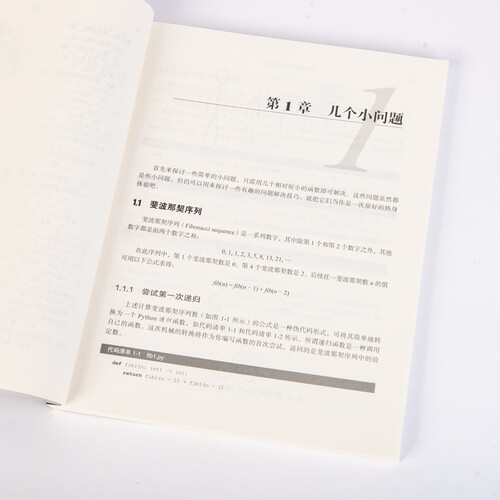 1
第 1 章 几个小问题
首先来探讨一些简单的小问题,只需用几个相对短小的函数即可解决。这些问题虽然都
是些小问题,但仍可以用来探讨一些有趣的问题解决技巧。就把它们当作是一次很好的热身
体验吧。
1.1 斐波那契序列
斐波那契序列(Fibonacci sequence)是一系列数字,其中除第 1 个和第 2 个数字之外,其他
数字都是前两个数字之和。
0, 1, 1, 2, 3, 5, 8, 13, 21, …
在此序列中,第 1 个斐波那契数是 0。第 4 个斐波那契数是 2。后续任一斐波那契数 n 的值
可用以下公式求得。
fib(n) = fib(n − 1) + fib(n − 2)
1.1.1 尝试第一次递归
上述计算斐波那契序列数(如图 1-1 所示)的公式是一种伪代码形式,可将其简单地转
换为一个 Python 递归函数,如代码清单 1-1 和代码清单 1-2 所示。所谓递归函数是一种调用
自己的函数。这次机械的转换将作为你编写函数的首次尝试,返回的是斐波那契序列中的给
定数。
代码清单 1-1 fib1.py
def fib1(n: int) -> int:
return fib1(n − 1) + fib1(n − 2)